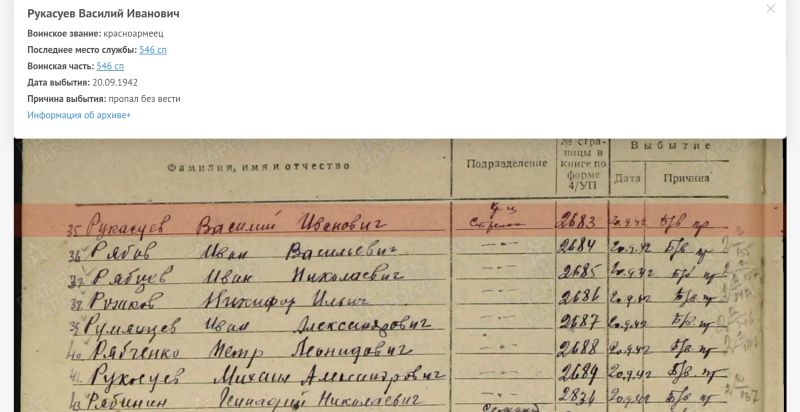 Рукасуев Василий Иванович
Воинское звание: красноармеец
Последнее место службы: 546 сп
Воинская часть: 546 сп
Дата выбытия: 20.09.1942
Причина выбытия: пропал без вести
Информация об архиве+
Фамилия, имя и отчество
Подразделение
№ стра-
ницы в
книге по
форме
4/УП
Выбытие
Дата Причина
35 Рукасуев Василий Иванович 2683 20.9.42 Б/в пр
36 Рябов Иван Васильевич -"- 2684 20.9.42 Б/в пр
37 Рябцев Иван Николаевич -"- 2685 20.9.42 Б/в пр
38 Рожков Никифор Ильич -"- 2686 20.9.42 Б/в пр
39 Румянцев Иван Александрович -"- 2687 20.9.42 Б/в пр
40 Рябченко Петр Леонидович -"- 2688 20.9.42 Б/в пр
41 Рукосуев Михаил Александрович -"- 2689 20.9.42 Б/в пр
43 Рябинин Геннадий Николаевич -"- 2836 20.9.42 Б/в пр